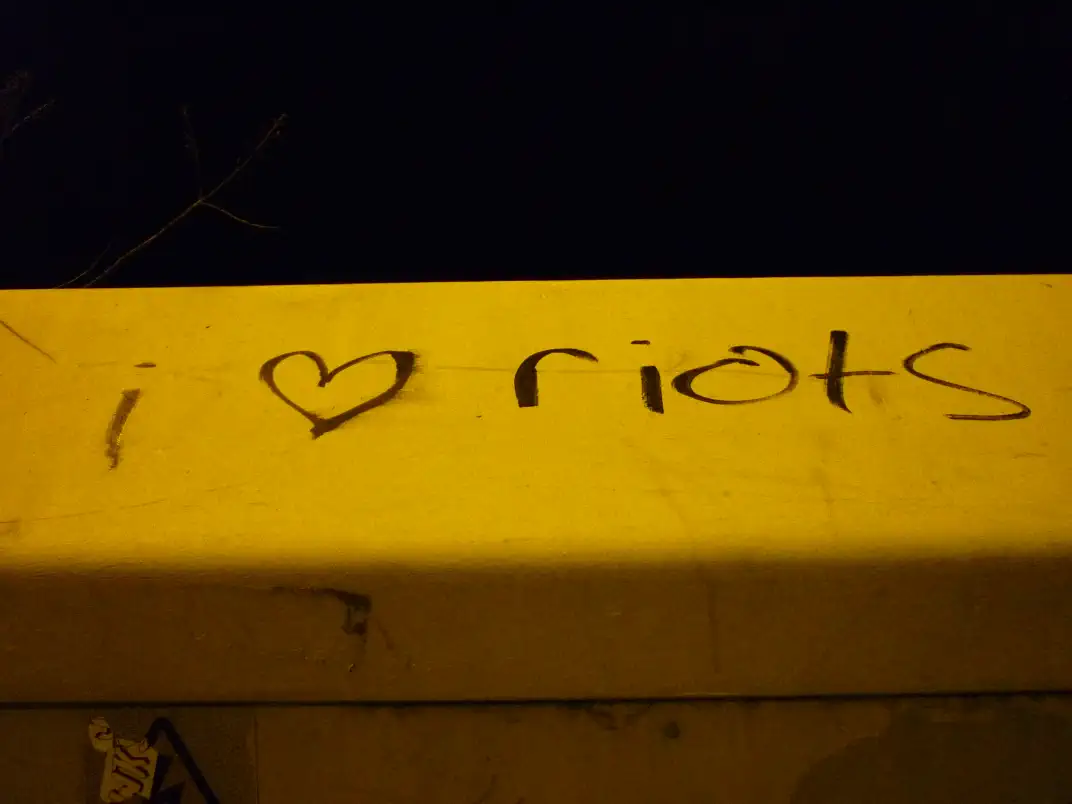 i ♡ riots